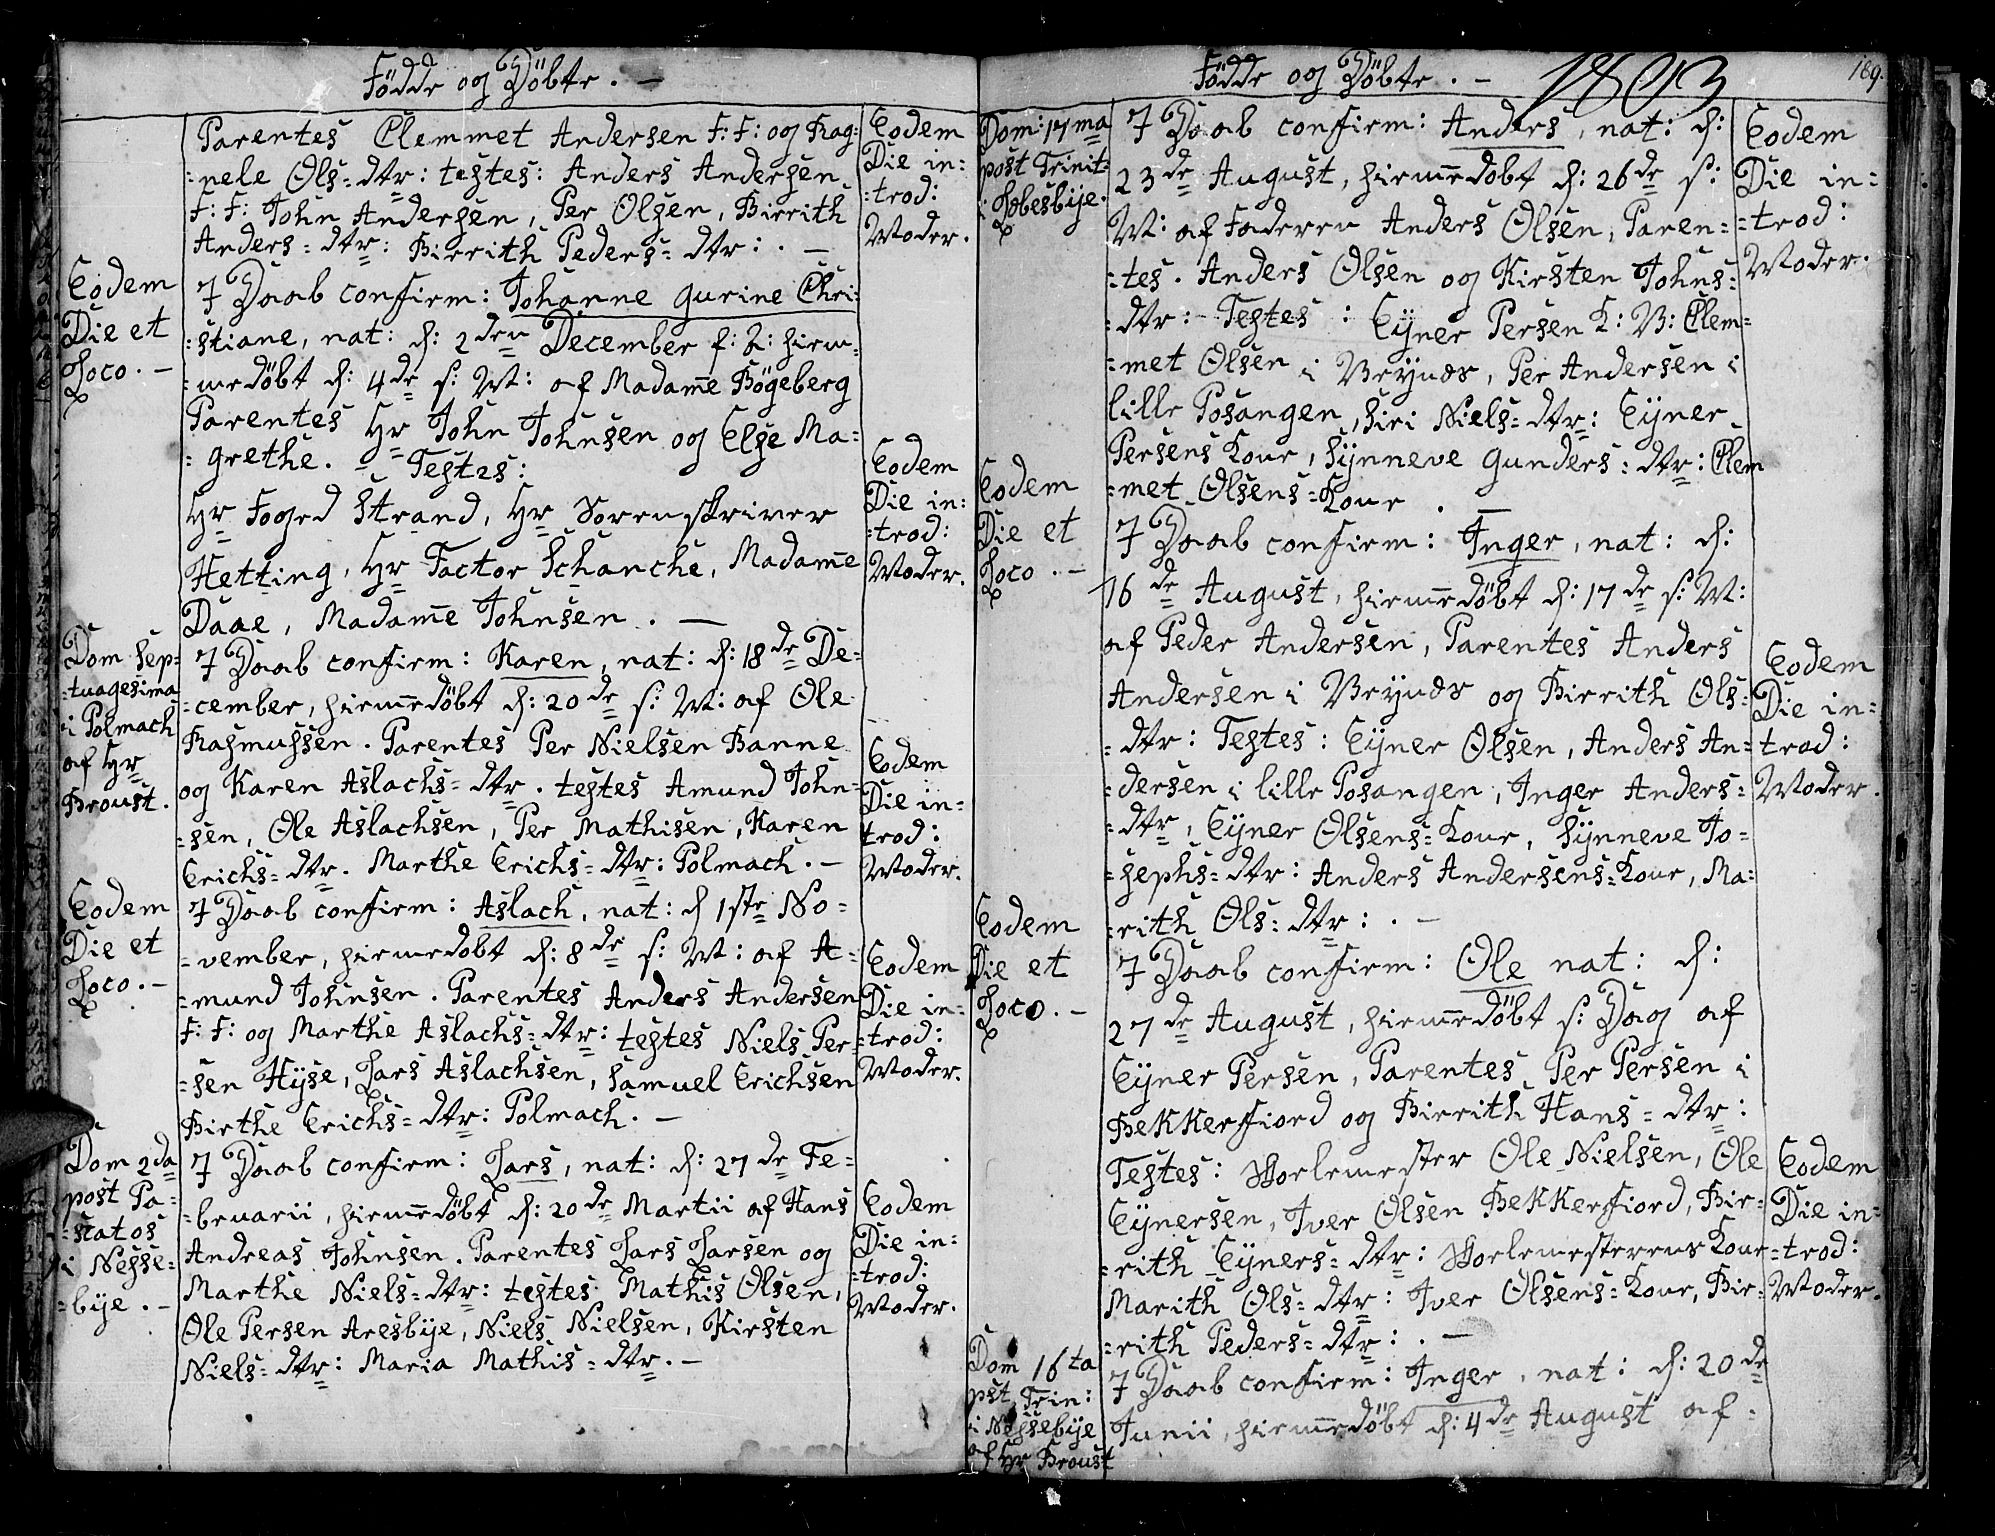 Födde og Döbte. -
Parentes Clemmet Andersen F: F: og Rag:
:nele Ols=dtr: testes: Anders Andersen
F: F: John Andersen, Per Olsen, Birrith
Anders=dtr: Birrith Peders=dtr: . -
Eodem
Die in:
:trod:
Moder.
Eodem
Die et
Loco. -
I Daab confirm: Johanne Gurine Chri:
:stiane, nat: d: 2den December f: A: hiem:
:medöbt d: 4de s: M: af Madame Bögeberg
Parentes Hr John Johnsen og Else Ma:
:grethe. - Testes:
Hr Foged Strand, Hr Sorenskriver
Hetting, Hr Factor Schanche, Madame
Daae, Madame Johnsen. -
Eodem
Die in:
:trod:
Moder.
Dom Sep:
:tuagesima
i Polmach
af Hr
Broust.
I Daab confirm: Karen, nat: d: 18de De:
:cember, hiemedöbt d: 20de s: M: af Ole
Rasmussen. Parentes Per Nielsen Banne
og Karen Aslachs=dtr. testes Amund John:
:sen, Ole Aslachsen, Per Mathisen, Karen
Erichs=dtr. Marthe Erichs=dtr: Polmach. -
Eodem
Die in:
trod:
Moder.
Eodem
Die et
Loco. -
I Daab confirm: Aslach, nat: d 1ste No:
:vember, hiemedobt d: 8de s: M: af A:
:mund Johnsen. Parentes Anders Andersen
F: F: og Marthe Aslachs=dtr: testes Niels Per:
:sen Hyse, Lars Aslachsen, Samuel Erichsen
Birthe Erichs=dtr: Polmach. -
Eodem
Die in:
:trod:
Moder.
Dom 2da
post Pa:
:scatos
i Nesse:
:bye. -
I Daab confirm: Lars, nat: d: 27de Fe:
:bruarii, hiemedöbt d: 20de Martii af Hans
Andreas Johnsen. Parentes Lars Larsen og
Marthe Niels=dtr: testes Mathis Olsen,
Ole Persen Aresbye, Niels Nielsen, Kirsten
Niels=dtr: Maria Mathis=dtr. -
Eodem
Die in:
:trod:
Moder.
Födde og Döbte. - 1803 189.
Dom: 17ma
post Trinit:
i Lebesbye.
I Daab confirm: Anders, nat: d:
23de August, hiemedöbt d: 26de s:
M: af Faderen Anders Olsen, Paren:
:tes. Anders Olsen og Kirsten Johns:
:dtr: Testes: Eyner Persen K: B: Clem:
:met Olsen i Veynes, Per Andersen i
lille Posangen, Siri Niels=dtr: Eyner
Persens Kone, Synneve Gunders=dtr: Clem
:met Olsens=Kone. -
Eodem
Die in:
:trod:
Moder.
Eodem
Die et
Loco. -
I Daab confirm: Inger, nat: d:
16de August, hiemedöbt d: 17de s: M:
af Peder Andersen, Parentes Anders
Andersen i Veynes og Birrith Ols:
:dtr: Testes: Eyner Olsen, Anders An:
:dersen i lille Posangen, Inger Anders:
:dtr, Eyner Olsens=Kone, Synneve Jo:
:sephs=dtr: Anders Andersens=Kone, Ma:
:rith Ols=dtr: . -
Eodem
Die in:
trod:
Moder.
Eodem
Die et
Loco. -
I Daab confirm: Ole nat: d:
27de August, hiemedöbt s: Dag af
Eyner Persen, Parentes Per Persen i
Bekkerfiord og Birrith Hans=dtr:
Testes: Skolemester Ole Nielsen, Ole
Eynersen, Iver Olsen Bekkerfiord, Bir:
:rith Eyners=dtr: Skolemesterens Kone
Marith Ols=dtr: Iver Olsens=Kone, Bir:
:rith Peders=dtr: . -
Eodem
Die in:
:trod:
Moder.
Dom 16ta
pst Trin:
i Nessebye
af Hr Broust
I Daab confirm: Inger, nat: d: 20de
Junii, hiemedöbt d: 4de August af